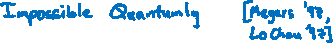 Impossible Quantumly [Mayers '97,
LoChau '97]